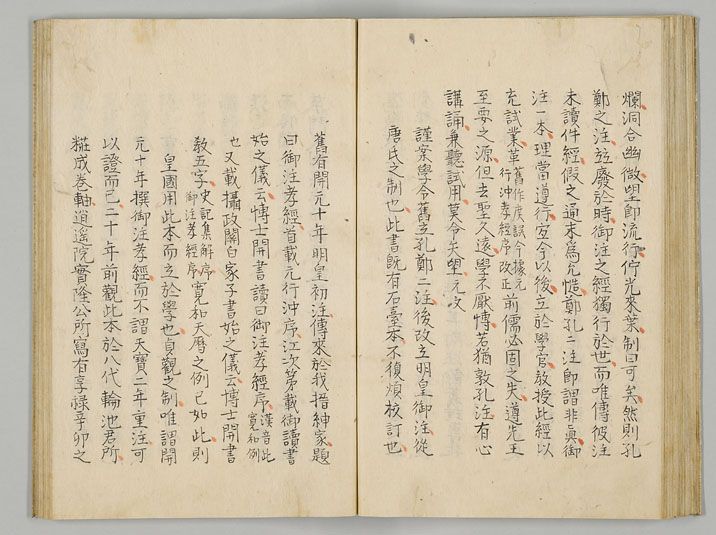 爛洞合幽微望即流行佇光來葉制曰可矣然則孔
鄭之注竝廢於時御注之經獨行於世而唯傳彼注
未讀件經假之通末爲允愜鄭孔二注即謂非眞御
注一本理當遵行宜今以後立於學官教授此經以
充試業革舊作度誤今據元行沖孝經序改正前儒必固之失遵先王
至要之源但去聖久遠學不厭博若猶敦孔注有心
講誦兼聽試用莫令失望元文
謹案學令舊立孔鄭二注後改立明皇御注從
唐氏之制也此書既有石臺本不復煩校訂也
舊有開元十年明皇初注傳來於我搢紳家題
曰御注孝經首載元行沖序江次第載御讀書
始之儀云博士開書讀曰御注孝經序漢音此寬和例
也又載攝政關白家子書始之儀云博士開書
教五字史記集解序御注孝經序寬和天曆之例已如此則
皇國用此本而立於學也貞觀之制唯謂開
元十年撰御注孝經而不謂天寶二年重注可
以證而已二十年前觀此本於八代輪池君所
糚成卷軸逍遙院實隆公所寫有享祿辛卯之